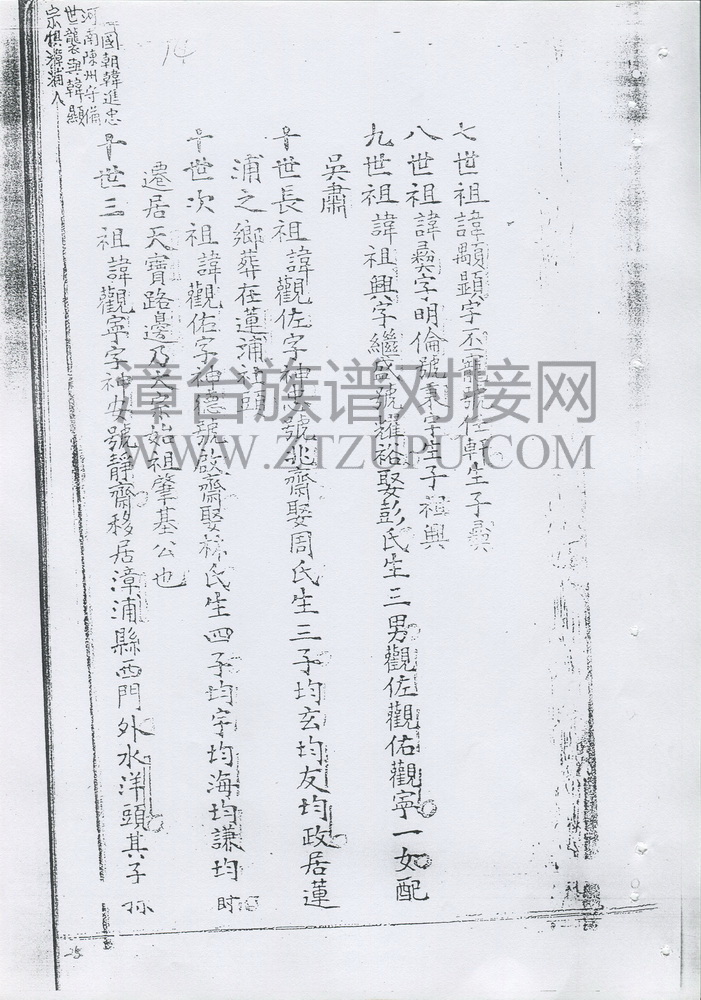 七世祖諱顯字丕號仕軒生子彛
八世祖諱彛字明倫號秉宇生子祖興
九世祖諱祖興字繼盛號耀裕娶彭氏生三男觀佐觀佑觀寧一女配
吳肅
十世長祖諱觀佐字神忠號兆齋娶周氏生三子均玄均友均政居蓮
浦之鄉葬在蓮浦社頭
十世次祖諱觀佑字神德號啟齋娶林氏生四子均宇均海均謙均時
遷居天寶路邊乃吴宗始祖肇基公也
十世三祖諱觀寧字神安號靜齋移居漳浦縣西門外水洋頭其子孫
國朝韓進忠
河南陳州守備
世襲與韓顯
宗俱漳浦人
14
25
漳台族谱对接网
WWW.ZTZUPU.COM